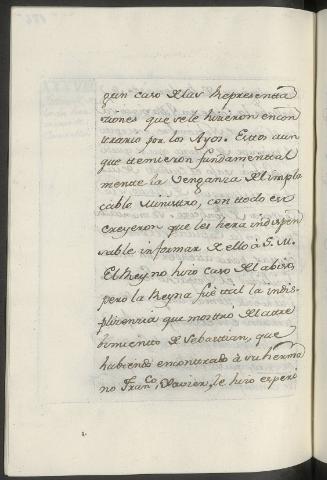 gun caso de las Representa
ciones que se le hicieron encon
trario por los Ayos. Estos aun
que temieron fundamental
mente la venganza del impla
cable Ministro, con todo eso
creyeron que les hera indispen
sable informar de ello à S. M.
El Rey no hizo caso del abiso,
pero la Reyna fuè tal la indis-
plicenzia que mostro del atre
bimiento de Sebastian, que
habiendo encontrado à su herma
no Fran.co Xavier, le hizo experi